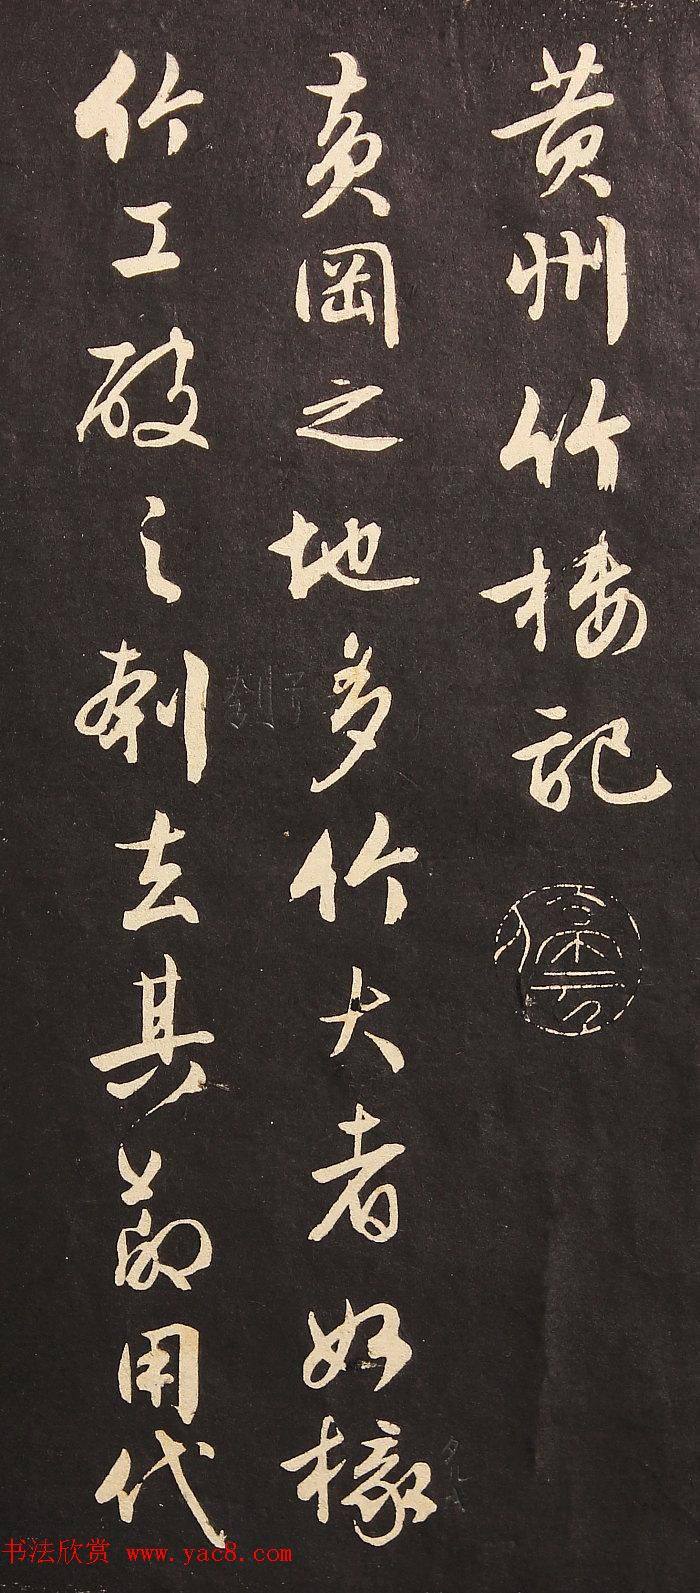 黄州竹楼記
黄岡之地多竹大者如椽
竹工破之刳去其節用代
书法欣赏 www.yac8.com